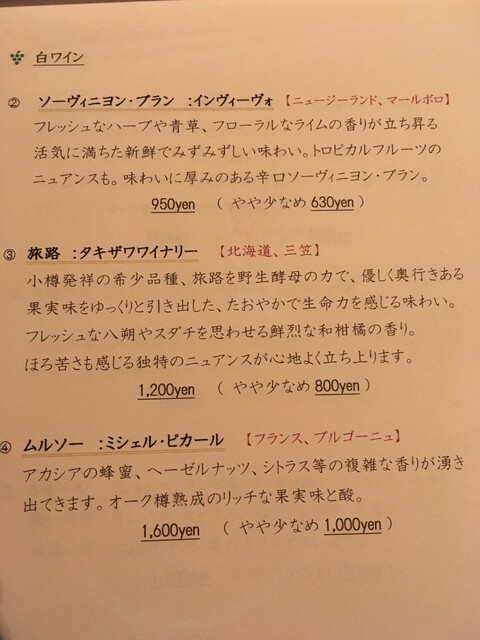 白ワイン
② ソーヴィニヨン・ブラン :インヴィーヴォ 【ニュージーランド、マールボロ】
フレッシュなハーブや青草、フローラルなライムの香りが立ち昇る
活気に満ちた新鮮でみずみずしい味わい。トロピカルフルーツの
ニュアンスも。味わいに厚みのある辛口ソーヴィニヨン・ブラン。
950yen ( やや少なめ 630yen )
③ 旅路 :タキザワワイナリー 【北海道、三笠】
小樽発祥の希少品種、旅路を野生酵母の力で、優しく奥行きある
果実味をゆっくりと引き出した、たおやかで生命力を感じる味わい。
フレッシュな八朔やスダチを思わせる鮮烈な和柑橘の香り。
ほろ苦さも感じる独特のニュアンスが心地よく立ち上ります。
1,200yen ( やや少なめ 800yen )
④ ムルソー :ミシェル・ピカール 【フランス、ブルゴーニュ】
アカシアの蜂蜜、ヘーゼルナッツ、シトラス等の複雑な香りが湧き
出てきます。オーク樽熟成のリッチな果実味と酸。
1,600yen ( やや少なめ 1,000yen )